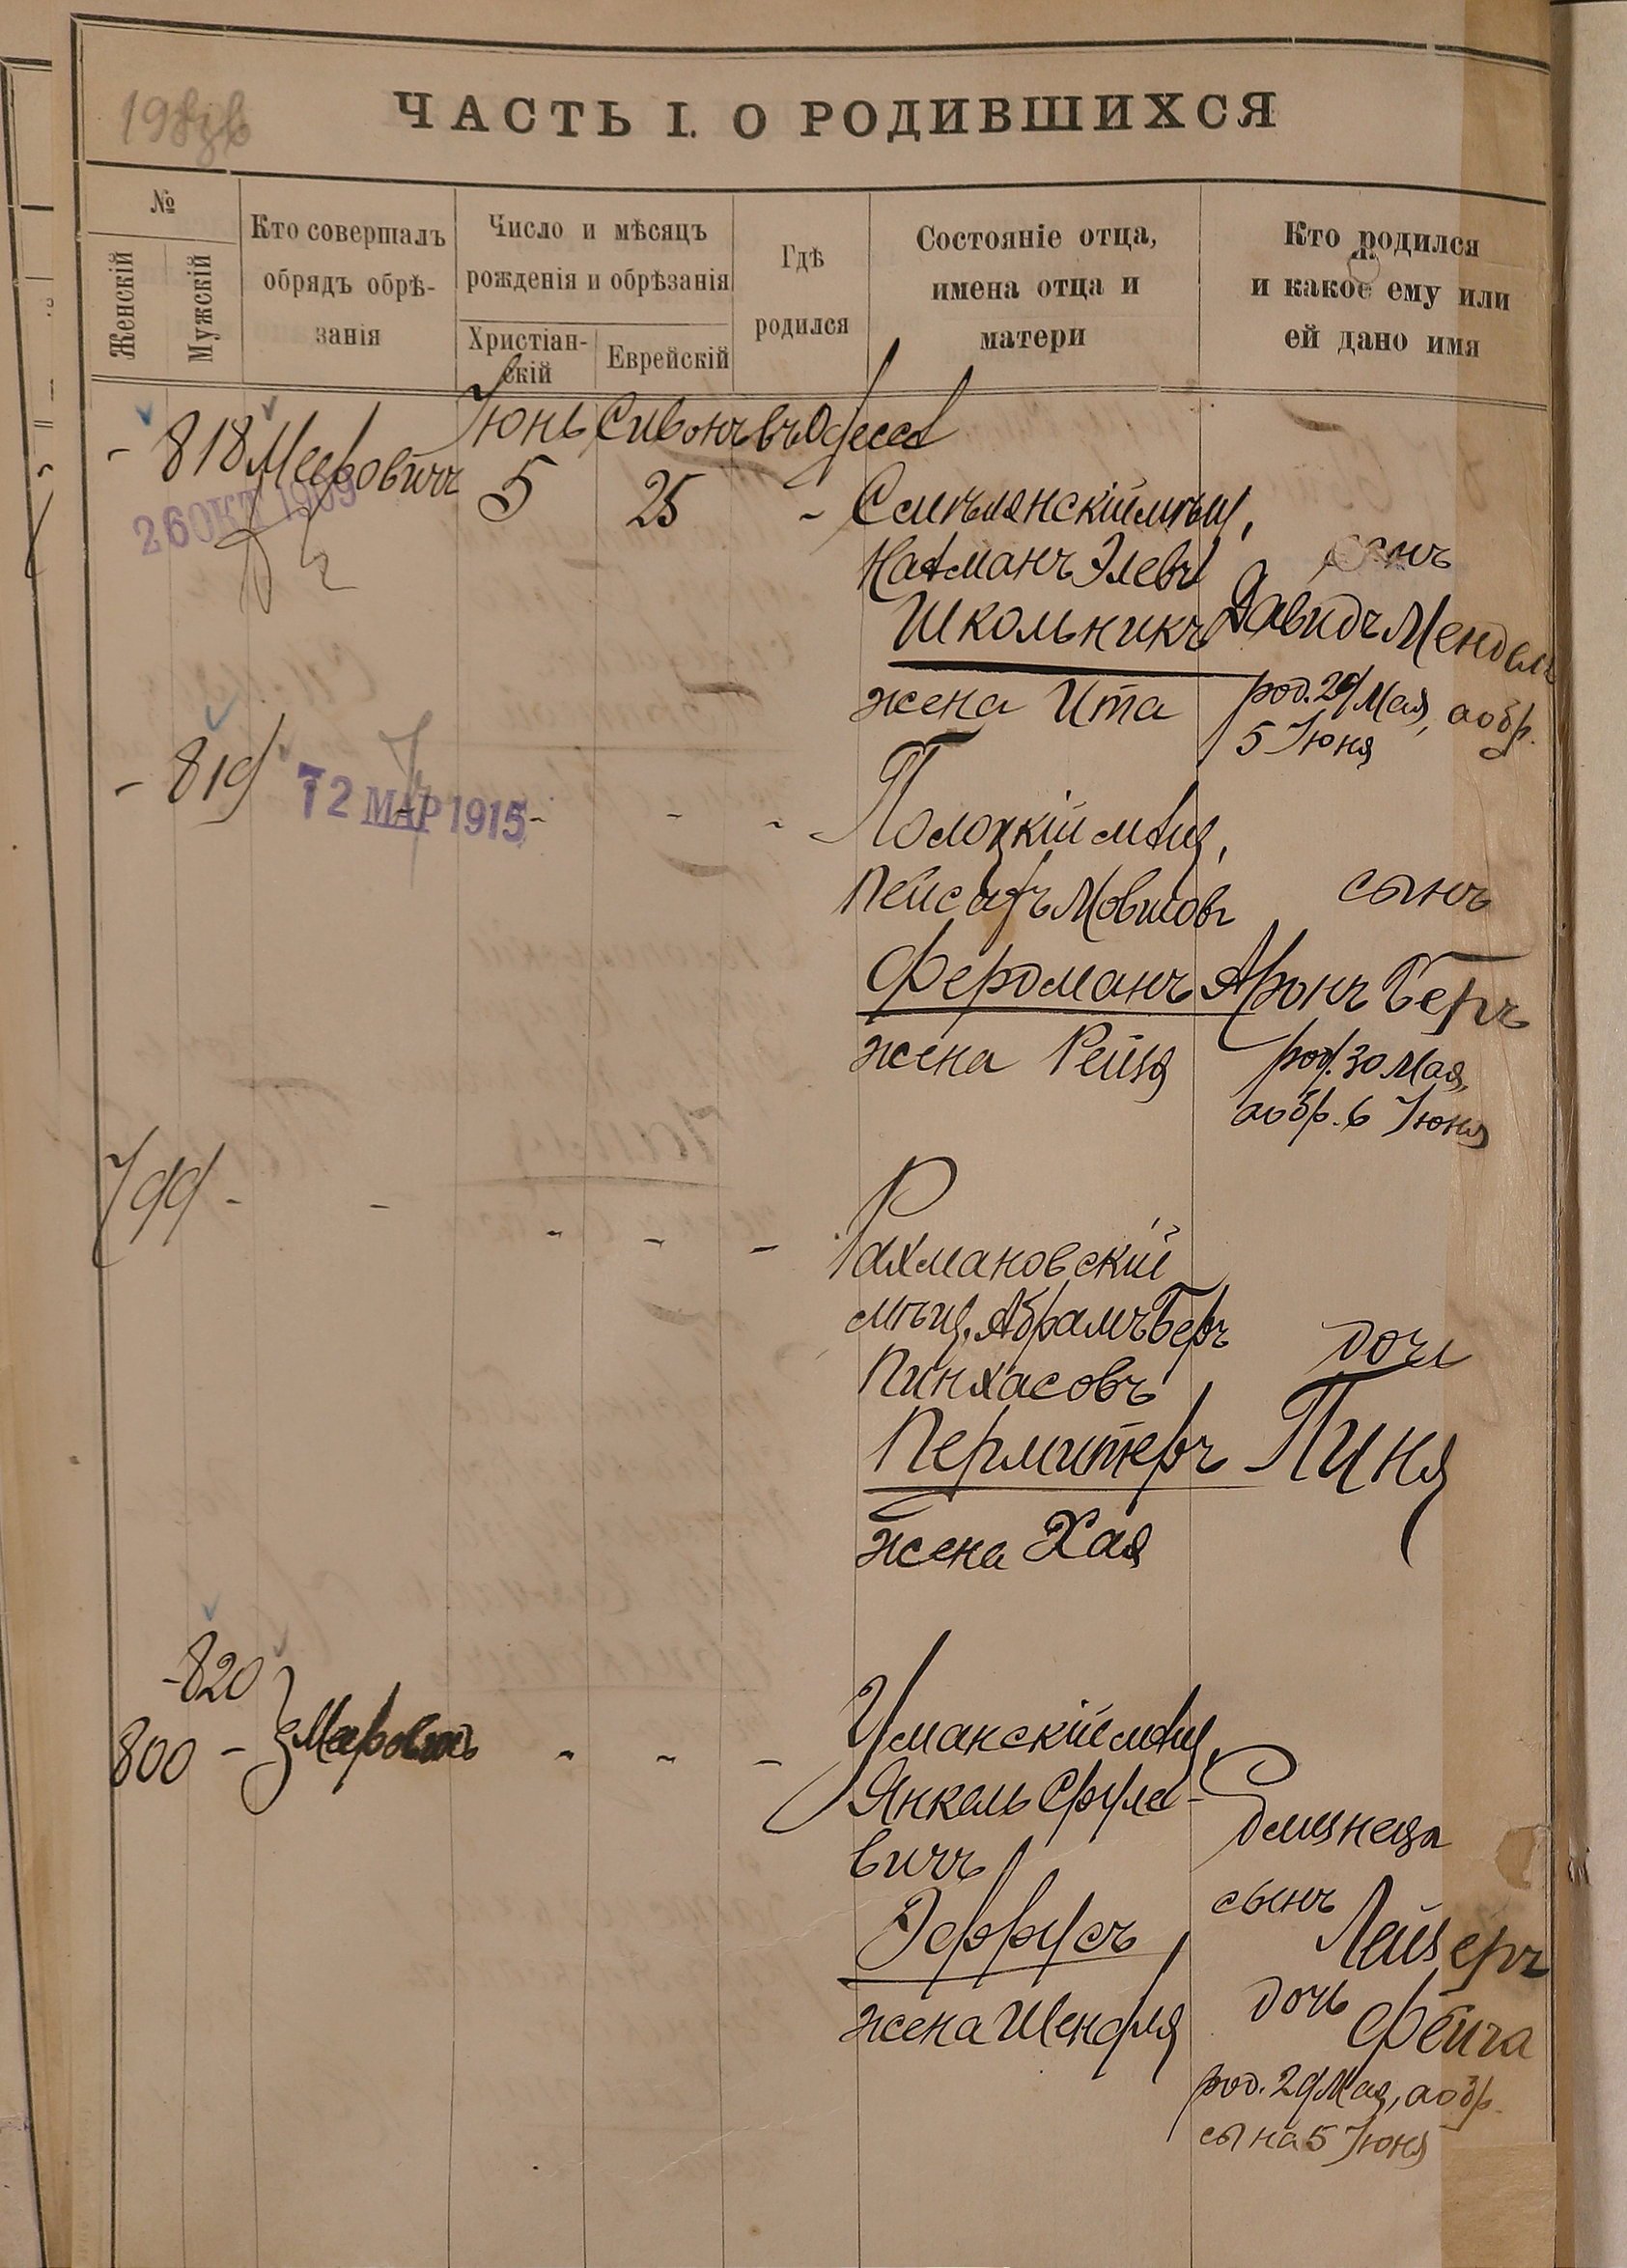 ЧАСТЬ I. О РОДИВШИХСЯ
№
Женскій
Мужскій
Кто совершалъ
обрядъ обрѣ-
занія
Число и мѣсяцъ
рожденія и обрѣзанія
Христіан-
скій
Еврейскій
Гдѣ
родился
Состояніе отца,
имена отца и
матери
Кто родился
и какое ему или
ей дано имя
- 818 Меровичъ Іюнь Сивонъ въ Одессѣ
26 ОКТ 1909
5 25 -
мѣщ.
Нахманъ Элевъ
Школьникъ
жена Ита
сынъ
Давидъ Мендель
род. 29 Мая, а обр.
5 Іюня
- 819 - - -
12 МАР 1915
Полоцкій мѣщ.
Пейсахъ Мовшовъ
Фердманъ
жена Рейзя
сынъ
Аронъ Беръ
род. 30 Мая,
а обр. 6 Іюня
799 - - - - -
Рахмановскій
мѣщ. Абрамъ Беръ
Пинхасовъ
Перлитеръ
жена Хая
дочь
Пиня
- 820
800 - Меровичъ - - -
Уманскій мѣщ.
Янкель Сруле-
вичъ
Эффусъ
жена Шендля
близнецы
сынъ
Лейзеръ
дочь
Фейга
род. 29 Мая, а обр.
сына 5 Іюня